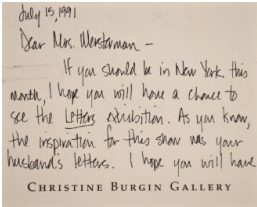 July 15, 1991
Dear Mrs. Westerman -
If you should be in New York this
month, I hope you will have a chance to
see the Letters exhibition. As you know,
the inspiration for this show was your
husband's letters. I hope you will have
CHRISTINE BURGIN GALLERY